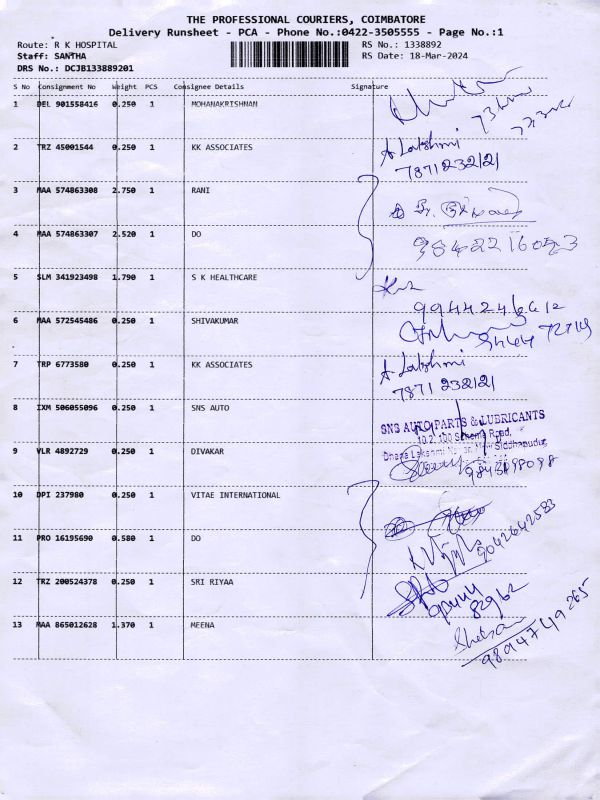 THE PROFESSIONAL COURIERS, COIMBATORE
Delivery Runsheet - PCA - Phone No.:0422-3505555 - Page No.:1
Route: R K HOSPITAL RS No.: 1338892
Staff: SANTHA RS Date: 18-Mar-2024
DRS No.: DCJB133889201
S No Consignment No Weight PCS Consignee Details Signature
1 DEL 901558416 0.250 1 MOHANAKRISHNAN
2 TRZ 45001544 0.250 1 KK ASSOCIATES A Lakshmi
7871232121
3 MAA 574863308 2.750 1 RANI
4 MAA 574863307 2.520 1 DO 9842216053
5 SLM 341923498 1.790 1 S K HEALTHCARE
6 MAA 572545486 0.250 1 SHIVAKUMAR
7 TRP 6773580 0.250 1 KK ASSOCIATES A Lakshmi
7871 232121
8 IXM 506055096 0.250 1 SNS AUTO SNS AUTO PARTS & LUBRICANTS
9 VLR 4892729 0.250 1 DIVAKAR
10 DPI 237980 0.250 1 VITAE INTERNATIONAL
11 PRO 16195690 0.580 1 DO 9042642583
12 TRZ 200524378 0.250 1 SRI RIYAA
13 MAA 865012628 1.370 1 MEENA
9894749265